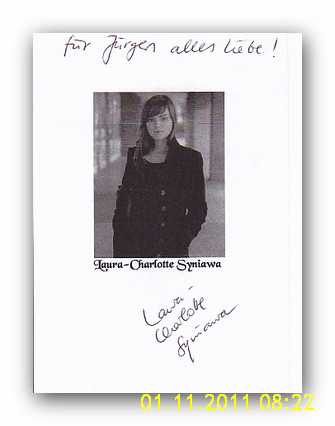 für Jürgen alles Liebe!
Laura-Charlotte Syniawa
Laura-
Charlotte
Syniawa
01.11.2011 08:22